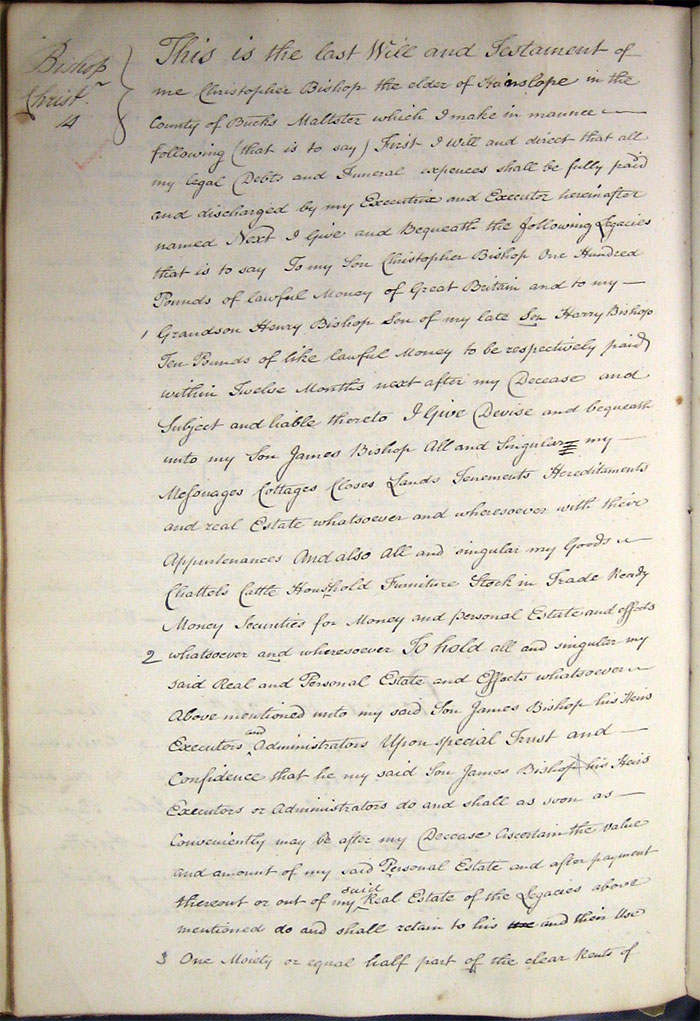 Bishop
Christr
14
This is the last Will and Testament of
me Christopher Bishop the elder of Hanslope in the
County of Bucks Maltster which I make in manner
following (that is to say) First I Will and direct that all
my legal Debts and Funeral expences shall be fully paid
and discharged by my Executrix and Executor hereinafter
named Next I Give and Bequeath the following Legacies
that is to say To my Son Christopher Bishop One Hundred
Pounds of lawful Money of Great Britain and to my
1 Grandson Henry Bishop Son of my late Son Harry Bishop
Ten Pounds of like lawful Money to be respectively paid
within Twelve Months next after my Decease and
Subject and liable thereto I Give Devise and bequeath
unto my Son James Bishop All and Singular my
Messuages Cottages Closes Lands Tenements Hereditaments
and real Estate whatsoever and wheresoever with their
Appurtenances And also All and singular my Goods
Chattels Cattle Houshold Furniture Stock in Trade Ready
Money Securities for Money and personal Estate and effects
2 whatsoever and wheresoever To hold all and singular my
said Real and Personal Estate and Effects whatsoever
Above mentioned unto my said Son James Bishop his Heirs
Executors and Administrators Upon special Trust and
Confidence that he my said Son James Bishop his Heirs
Executors or Administrators do and shall as soon as
Conveniently may be after my Decease Ascertain the value
and amount of my said Personal Estate and after payment
thereout or out of my said Real Estate of the Legacies above
mentioned do and shall retain to his and their Use
3 One Moiety or equal half part of the clear Rents of